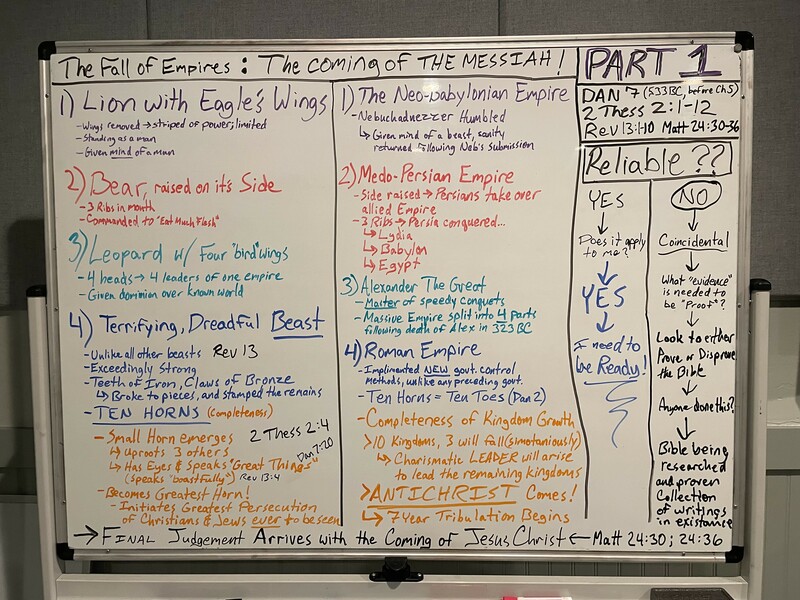 The Fall of Empires : The coming of THE MESSIAH!
1) Lion with Eagle's Wings
- Wings removed → striped of power; limited
- Standing as a man
- Given mind of a man
2) Bear, raised on it's Side
- 3 Ribs in mouth
- Commanded to "Eat Much Flesh"
3) Leopard w/ Four "bird" wings
- 4 heads → 4 leaders of one empire
- Given dominion over known world
4) Terrifying, Dreadful Beast
- Unlike all other beasts Rev 13
- Exceedingly Strong
- Teeth of Iron, Claws of Bronze
↳ Broke to pieces, and stamped the remains
- TEN HORNS (completeness)
- Small Horn emerges 2 Thess 2:4
↳ Uproots 3 others
↳ Has Eyes & Speaks "Great Things" Dan 7:20
(speaks "boastfully") Rev 13:4
- Becomes Greatest Horn!
- Initiates Greatest Persecution
of Christians & Jews ever to be seen
1) The Neo-babylonian Empire
- Nebuchadnezzer Humbled
↳ Given mind of a beast, sanity
returned following Neb's submission
2) Medo-Persian Empire
- Side raised → Persians take over
allied Empire
- 3 Ribs → Persia conquered...
↳ Lydia
↳ Babylon
↳ Egypt
3) Alexander The Great
- Master of speedy conquets
- Massive Empire split into 4 parts
following death of Alex in 323 BC
4) Roman Empire
- Implimented NEW govt. control
methods, unlike any preceding govt.
- Ten Horns = Ten Toes (Dan 2)
- Completeness of Kingdom Growth
>10 Kingdoms, 3 will fall (simotaniously)
↳ Charismatic LEADER will arise
to lead the remaining kingdoms
>ANTICHRIST Comes!
↳ 7 Year Tribulation Begins
→ FINAL Judgement Arrives with the Coming of Jesus Christ ← Matt 24:30; 24:36
PART 1
DAN 7 (533 BC, before Ch 5)
2 Thess 2:1-12
Rev 13:1-10 Matt 24:30-36
Reliable??
YES
↓
Does it apply
to me?
↓
YES
↓
I need to
be Ready!
NO
↓
Coincidental
↓
What "evidence"
is needed to
be "Proof"?
↓
Look to either
Prove or Disprove
the Bible
↓
Anyone done this?
↓
Bible being
researched
and proven
Collection
of writings
in existance